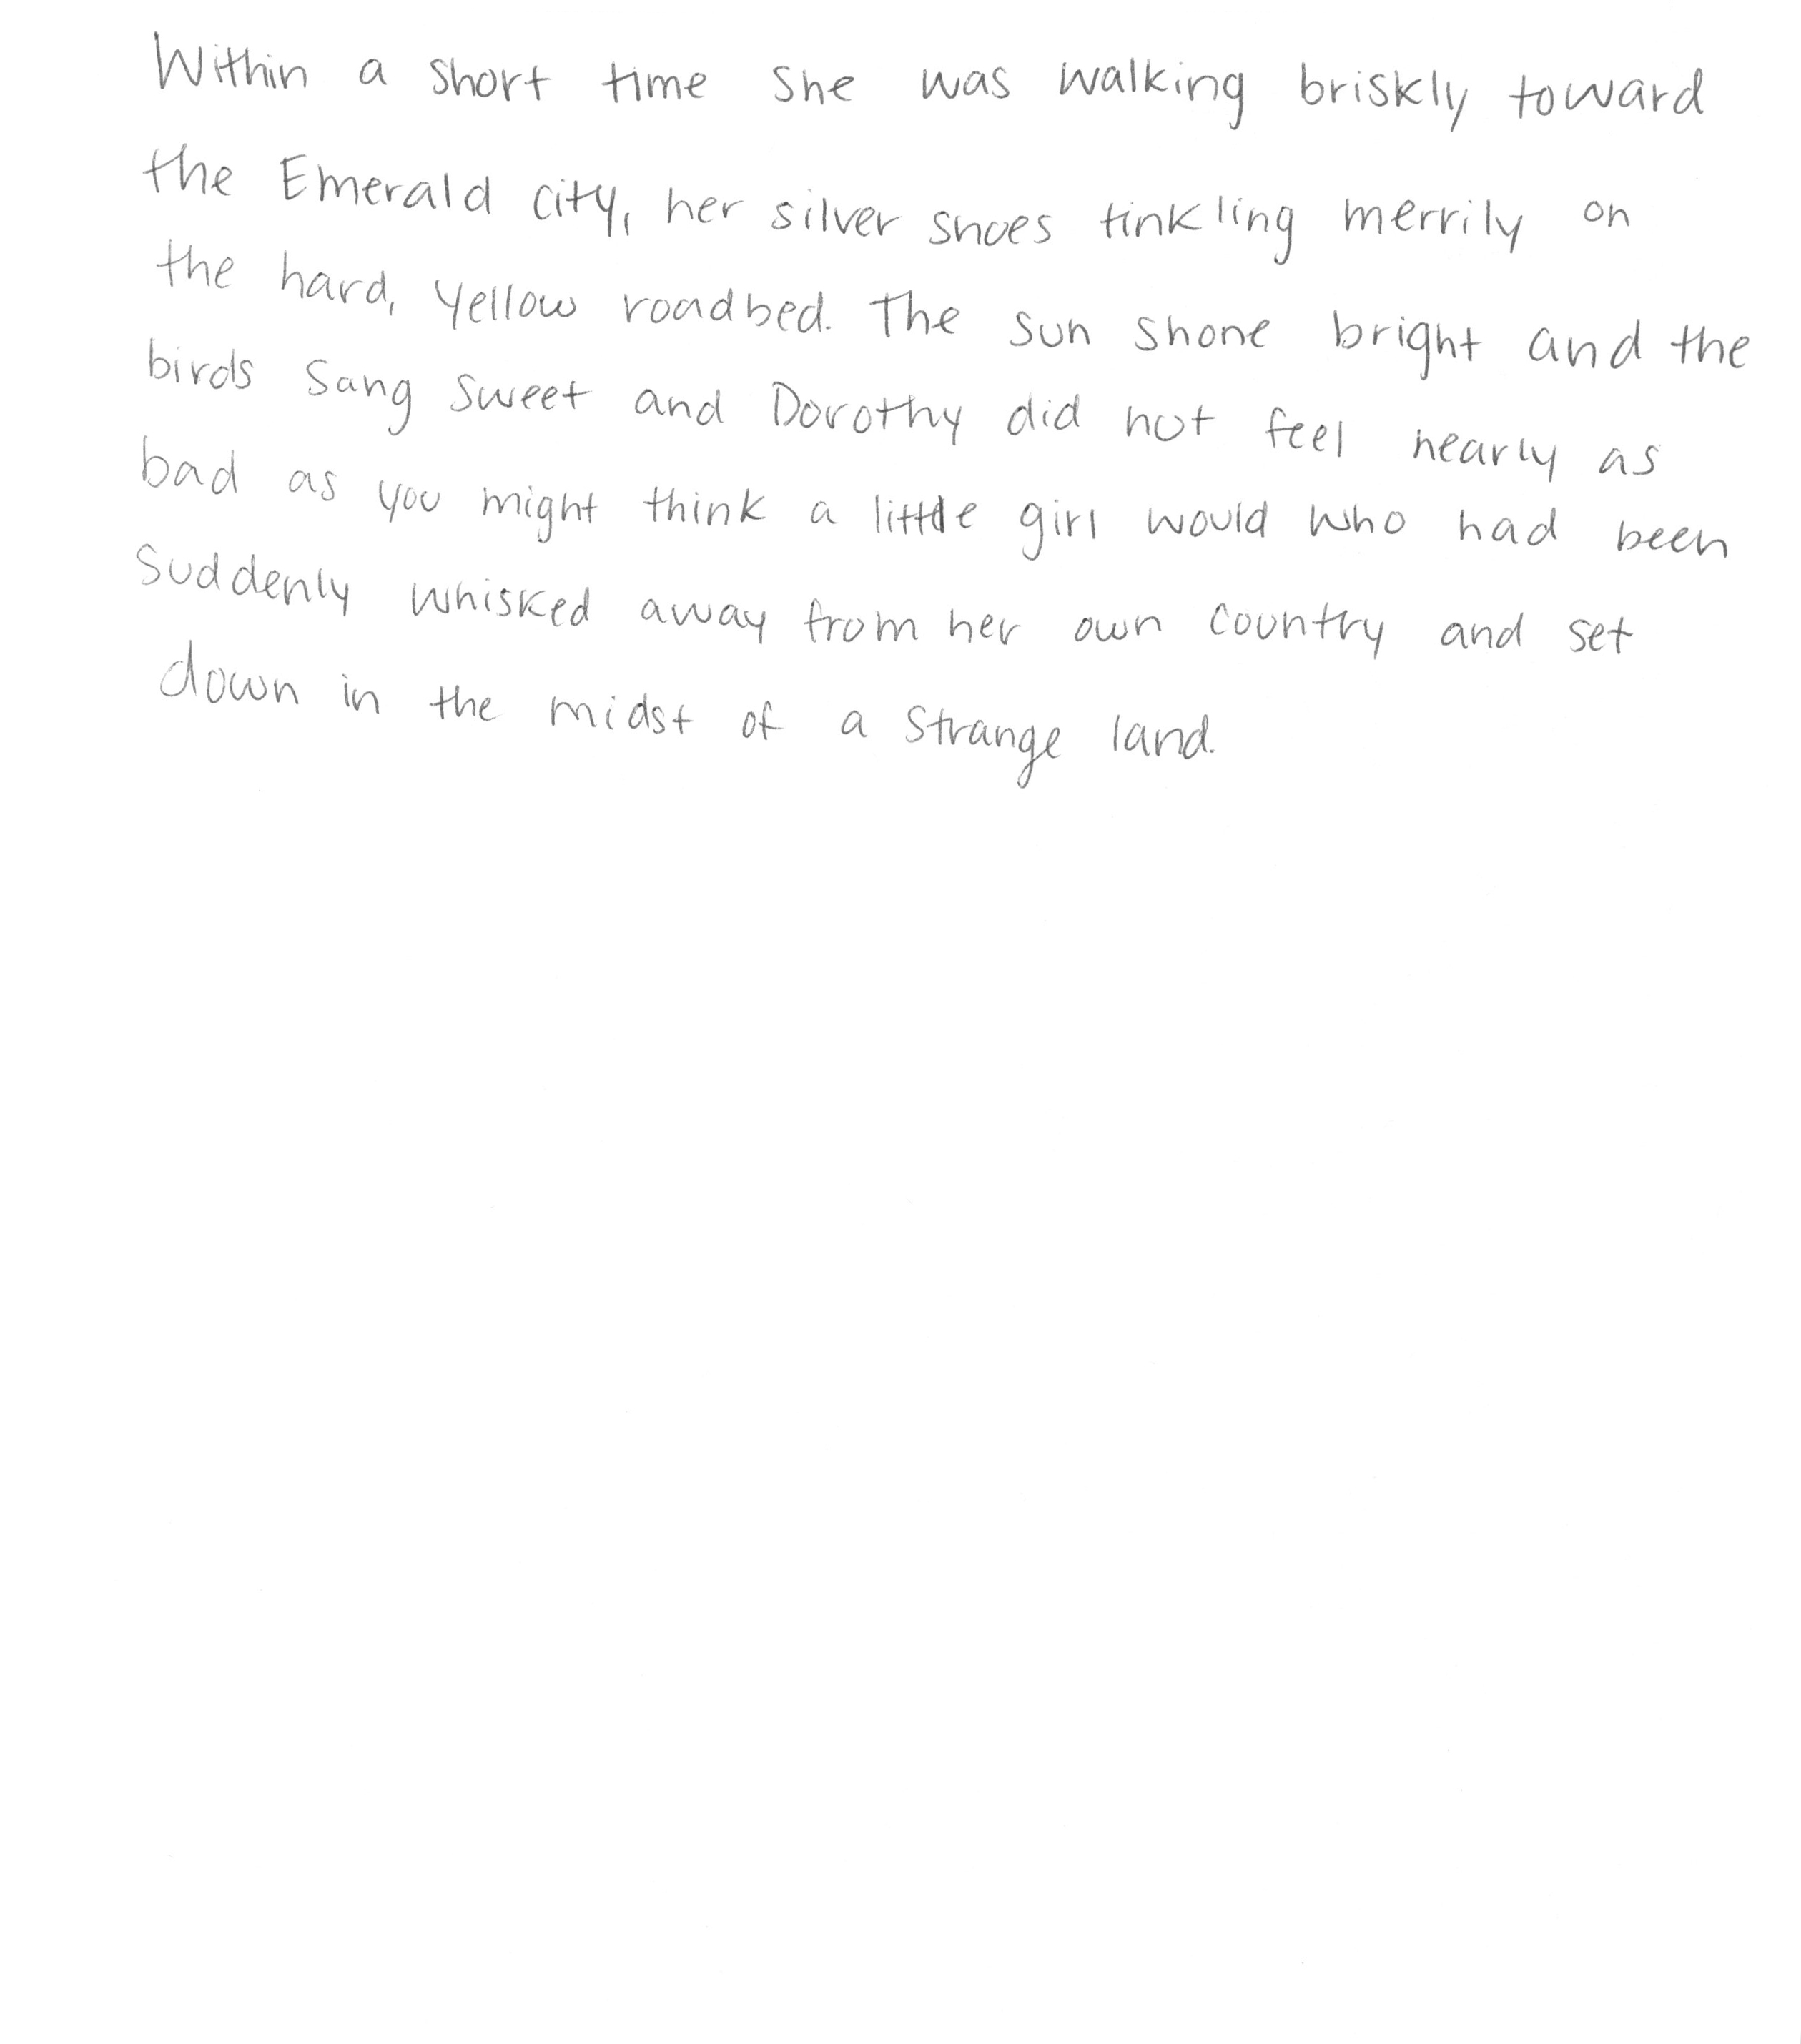 Within a short time she was walking briskly toward
the Emerald city, her silver shoes tinkling merrily on
the hard, yellow roadbed. The sun shone bright and the
birds sang sweet and Dorothy did not feel nearly as
bad as you might think a little girl would who had been
suddenly whisked away from her own country and set
down in the midst of a strange land.